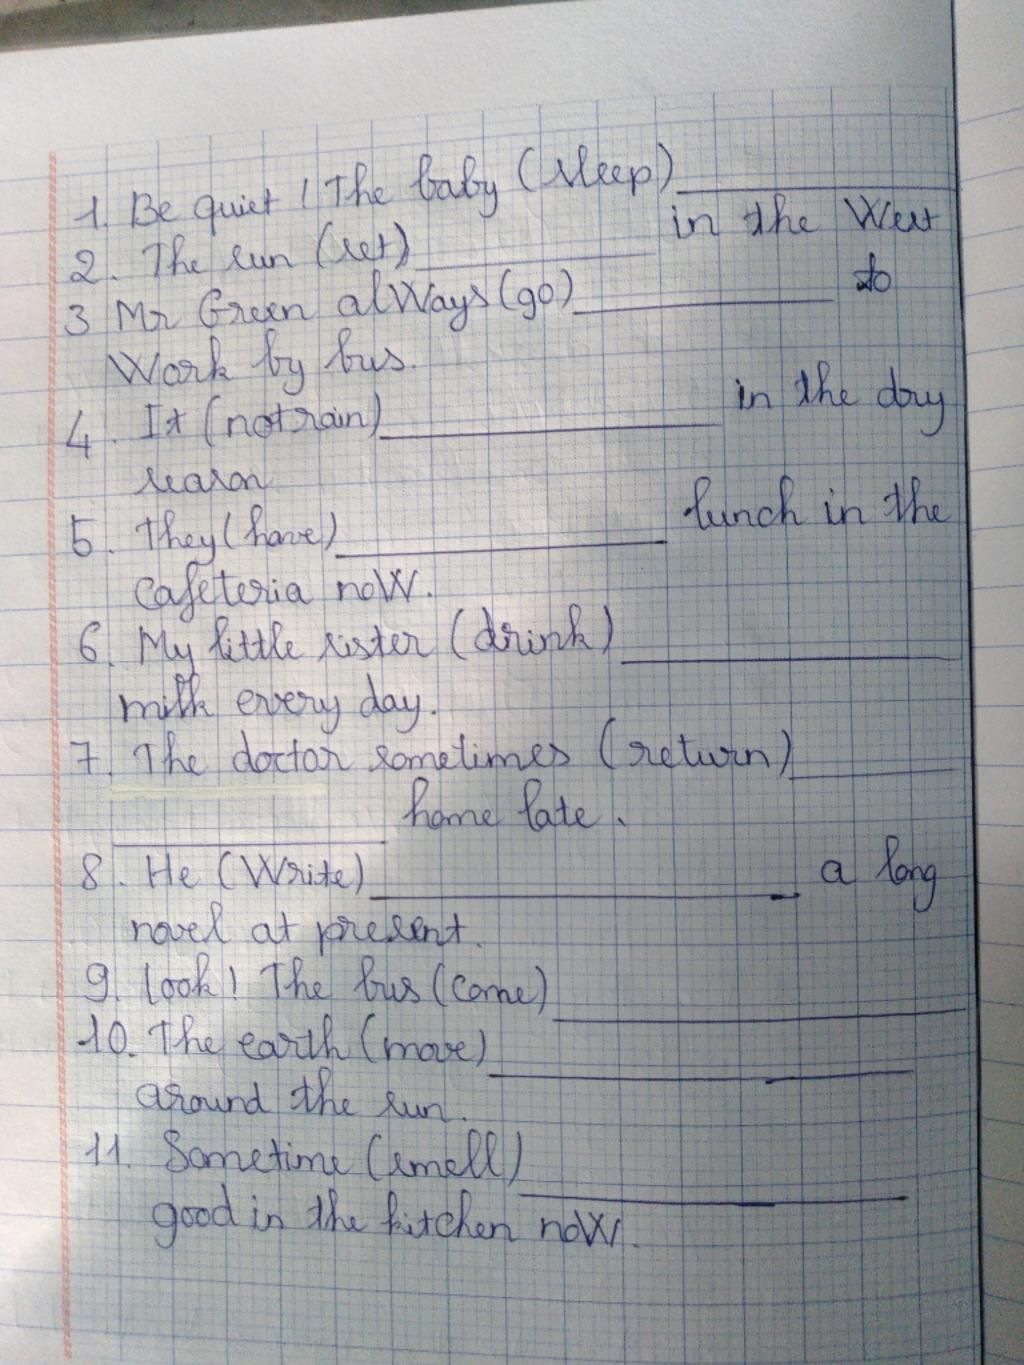 1. Be quiet ! The baby (sleep)
2. The sun (set) in the West
3 Mr Green alWays (go) to
Work by bus.
4. It (not rain) in the dry
season
5. They (have) lunch in the
cafeteria noW.
6. My little sister (drink)
milk every day.
7. The doctor sometimes (return)
home late.
8. He (Write) a long
novel at present.
9. Look! The bus (come)
10. The earth (move)
around the sun.
11. Sometime (smell)
good in the kitchen noW.